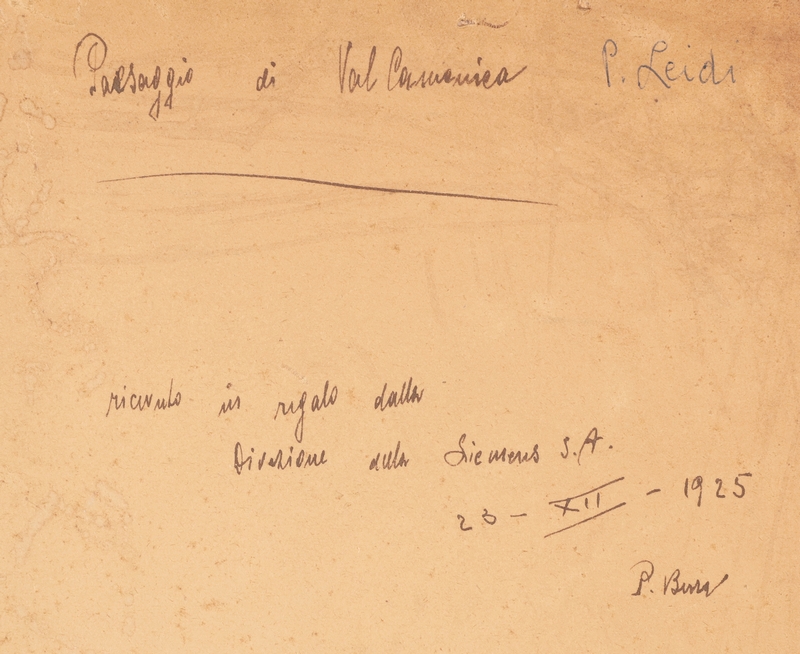 Paesaggio di Val Camonica P. Leidi
ricevuto in regalo dalla
Direzione della Siemens S.A.
23 - XII - 1925
P.